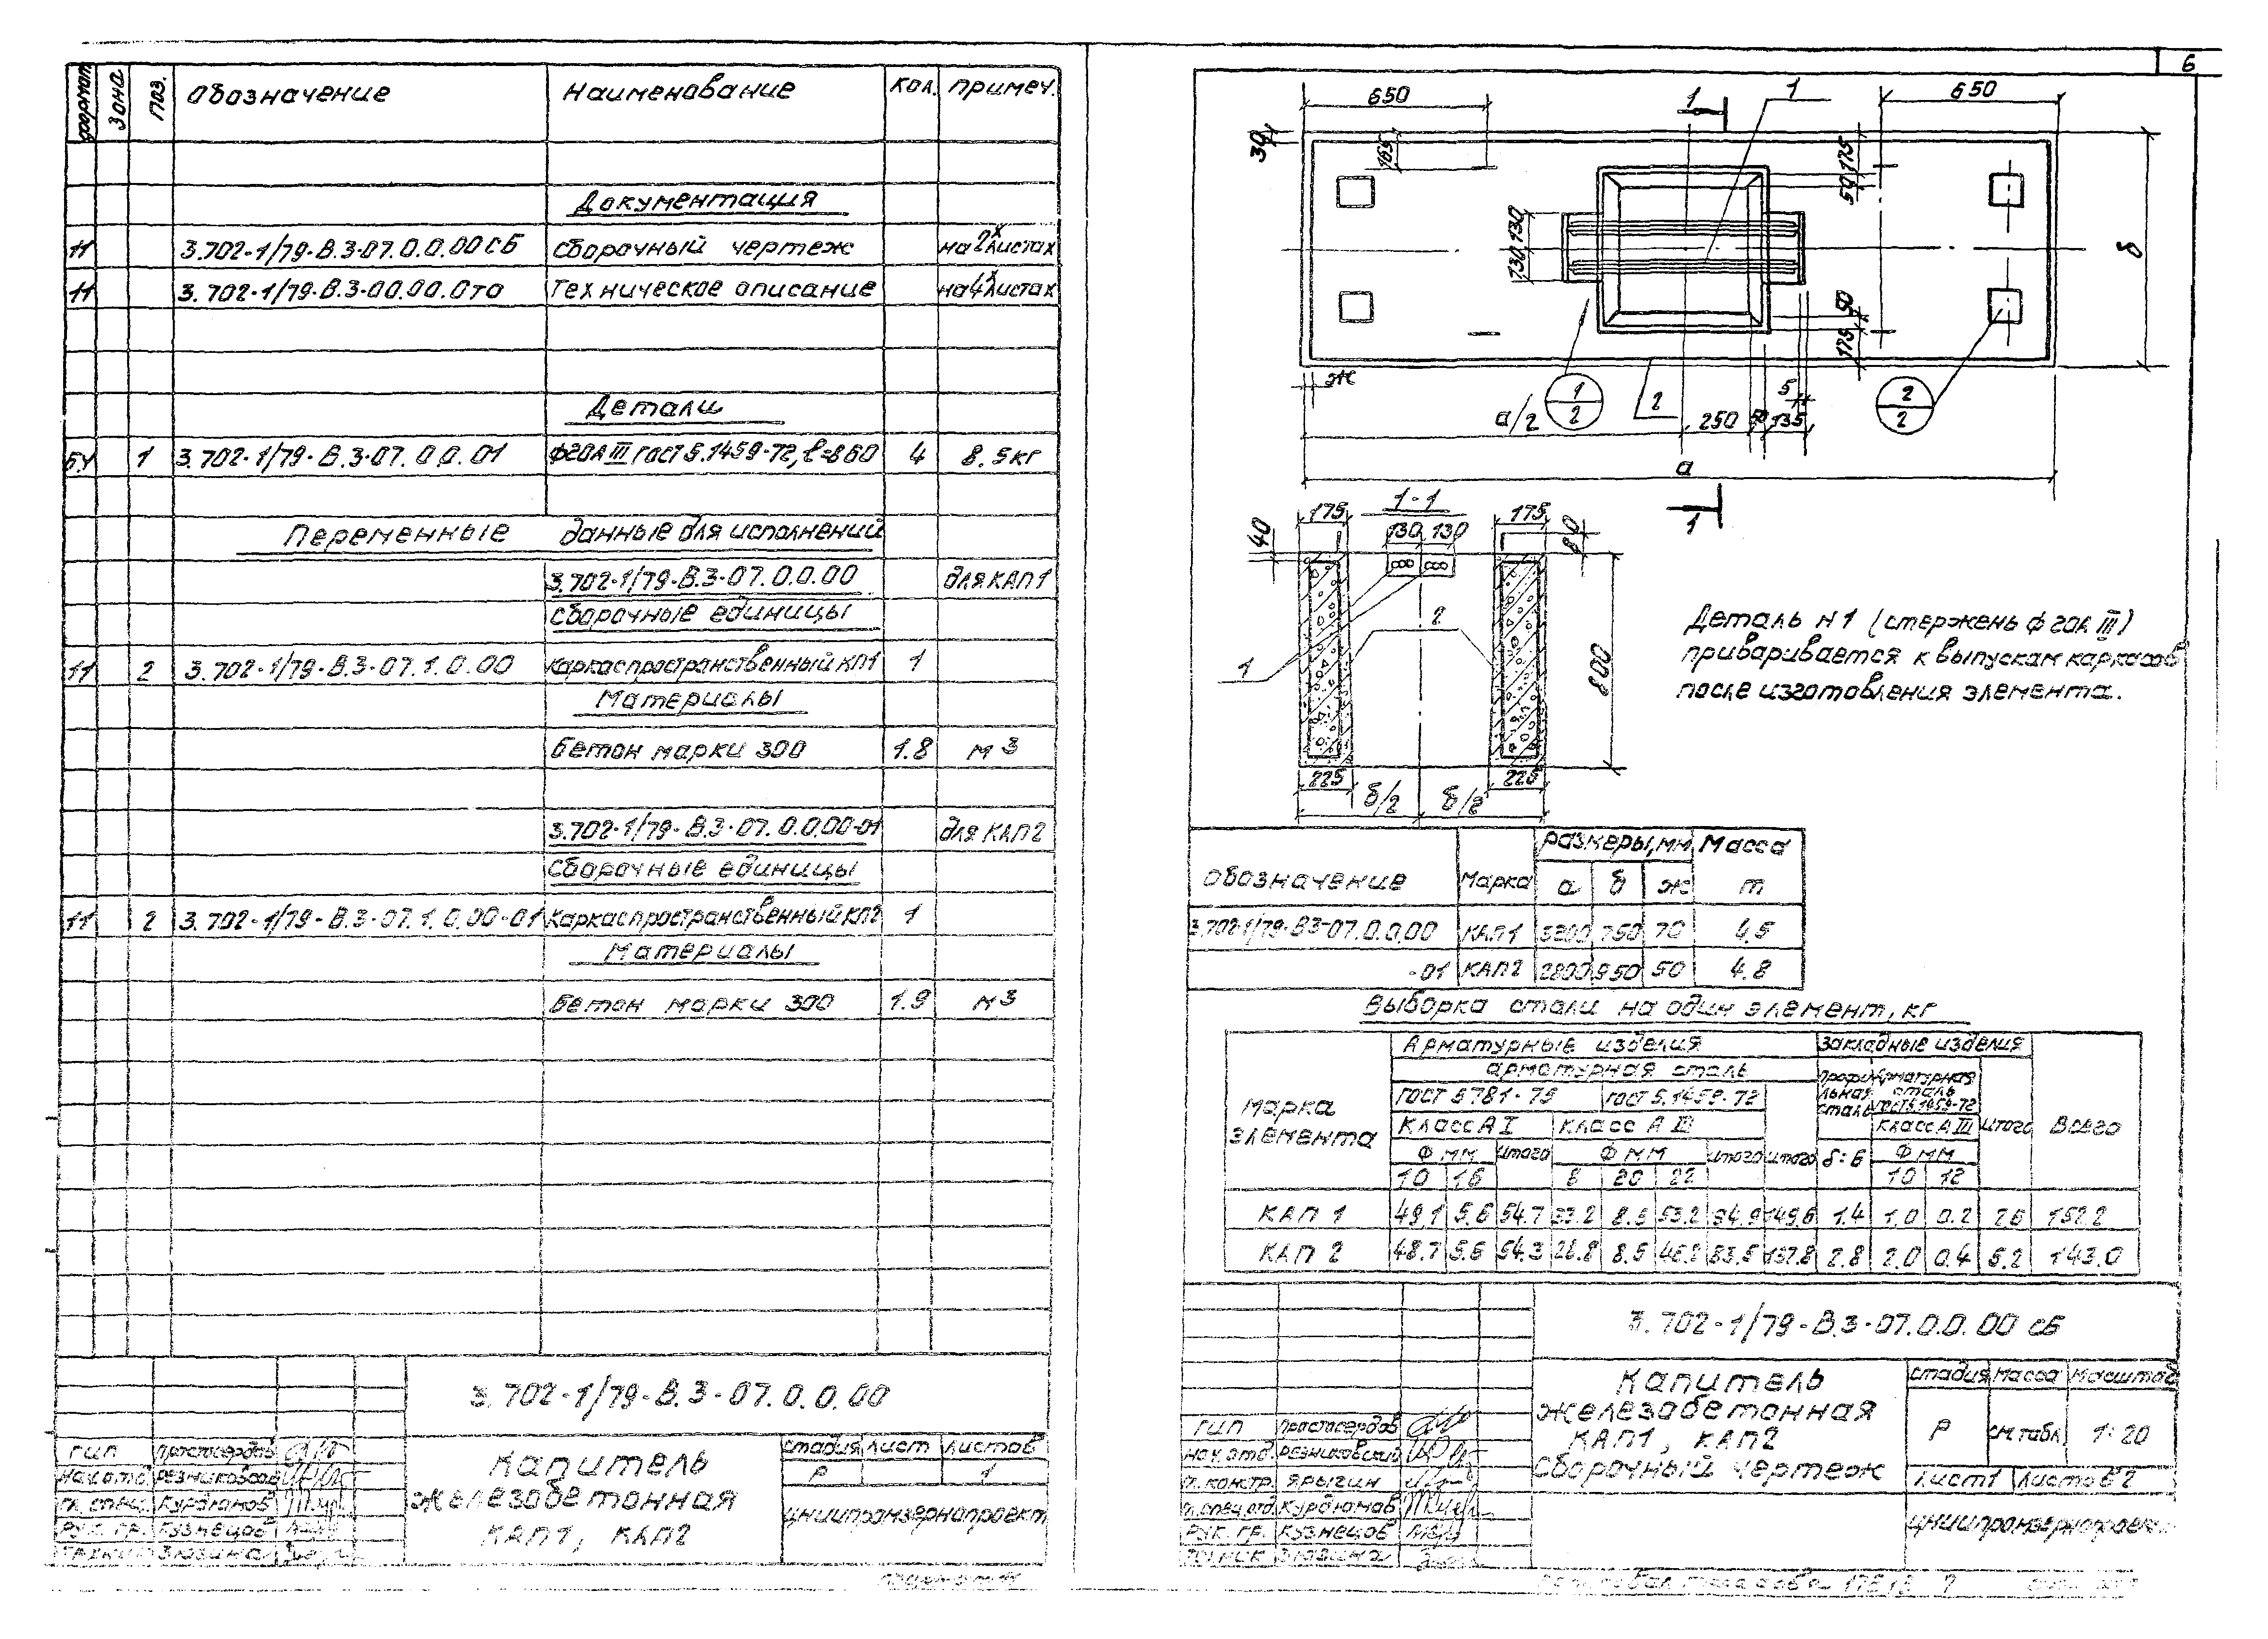 6
формат Зона поз. Обозначение Наименование Кол. Примеч.
Документация
11 3.702-1/79-В.3-07.0.0.00СБ Сборочный чертеж на 2х листах
11 3.702-1/79-В.3-00.00.0ТО Техническое описание на 4х листах
Детали
БЧ 1 3.702-1/79-В.3-07.0.0.01 ф20АIII ГОСТ 5.1459-72, ℓ=860 4 8.5кг
Переменные данные для исполнений
3.702-1/79-В.3-07.0.0.00 для КАП1
Сборочные единицы
11 2 3.702-1/79-В.3-07.1.0.00 Каркас пространственный КП1 1
Материалы
Бетон марки 300 1.8 м3
3.702-1/79-В.3-07.0.0.00-01 для КАП2
Сборочные единицы
11 2 3.702-1/79-В.3-07.1.0.00-01 Каркас пространственный КП2 1
Материалы
Бетон марки 300 1.9 м3
3.702-1/79-В.3-07.0.0.00
ГИП Простосердов
Нач.отд. Резниковский
Гл. спец. Курдюмов
Рук. гр. Кузнецов
Зюзина
Капитель
железобетонная
КАП1, КАП2
Стадия Лист Листов
Р 1
ЦНИИпромзернопроект
650 1 1 650
30 165 175 50
130 130
б
50 175
ж
а/2 1/2 2 250 50 135 5 2/2
а
1-1
1
175 130 130 175
40 80
2
1
800
225 225
б/2 б/2
Деталь N1 (стержень ф20АIII)
приваривается к выпускам каркасов
после изготовления элемента.
Обозначение Марка Размеры, мм Масса
а б ж т
3.702-1/79-В3-07.0.0.00 КАП1 3200 750 70 4.5
-01 КАП2 2800 950 50 4.8
Выборка стали на один элемент, кг
Марка элемента Арматурные изделия Закладные изделия Всего
Арматурная сталь Профильная сталь Арматурная сталь ГОСТ 5.1459-72
ГОСТ 5781-75 ГОСТ 5.1459-72
Класс АI Класс АIII Класс АIII Итого
Ф мм Итого Ф мм Итого Итого δ=6 Ф мм
10 16 8 20 22 10 12
КАП 1 49.1 5.6 54.7 33.2 8.5 53.2 94.9 149.6 1.4 1.0 0.2 2.6 152.2
КАП 2 48.7 5.6 54.3 26.8 8.5 48.2 83.5 137.8 2.8 2.0 0.4 5.2 143.0
3.702-1/79-В.3-07.0.0.00 СБ
ГИП Простосердов
Нач.отд. Резниковский
Гл.констр. Ярыгин
Гл.спец.отд. Курдюмов
Рук. гр. Кузнецов
Зюзина
Капитель
железобетонная
КАП1, КАП2
Сборочный чертеж
Стадия Масса Масштаб
Р см.табл. 1:20
Лист1 Листов 2
ЦНИИпромзернопроект